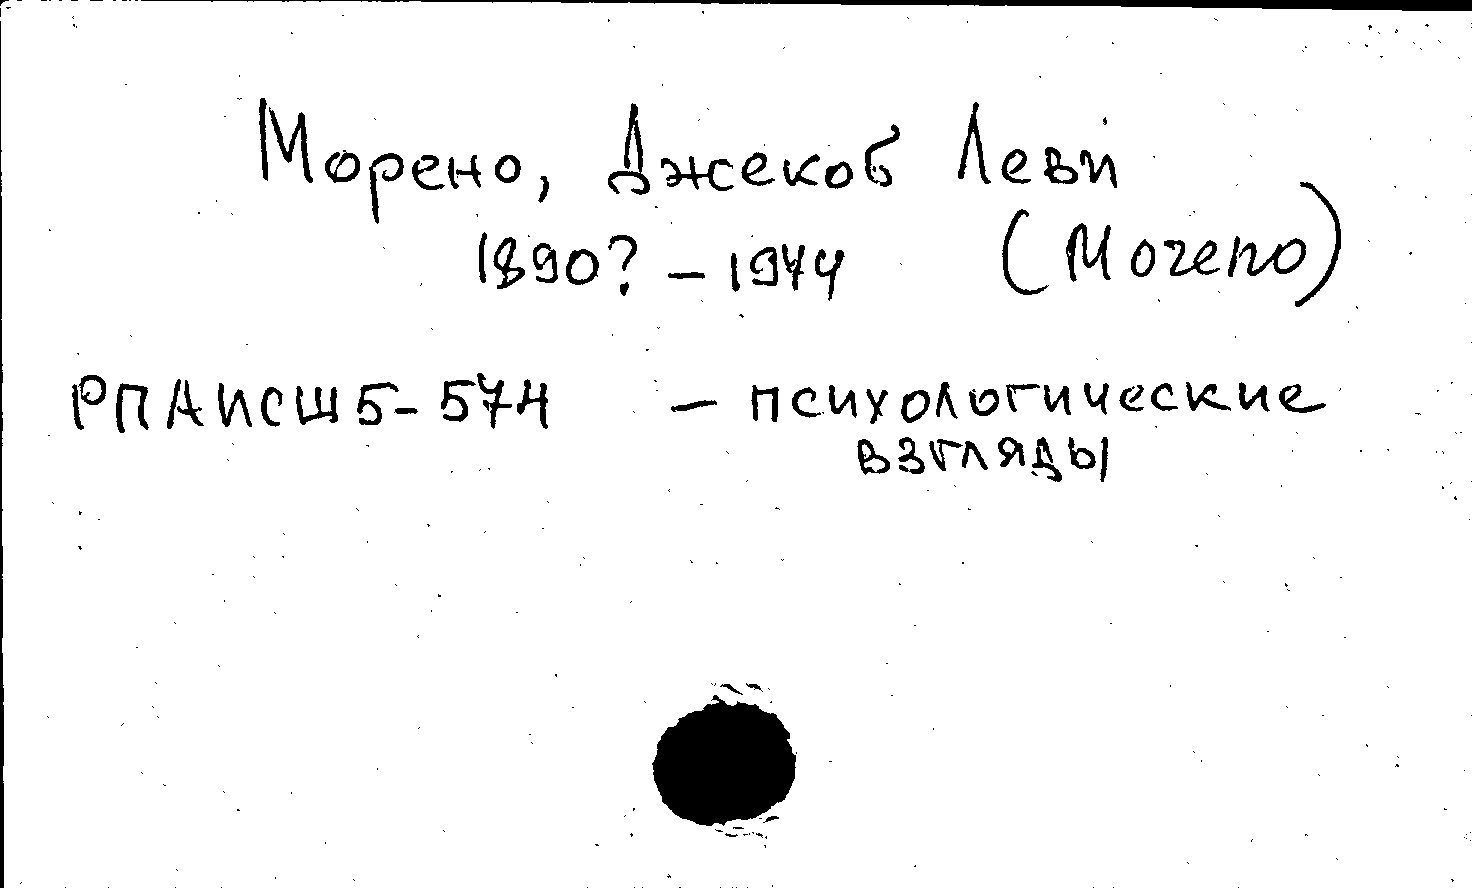 Морено, Джекоб Леви
1890? – 1974 (Moreno)
РПАИСШ5-574 – психологические
взгляды